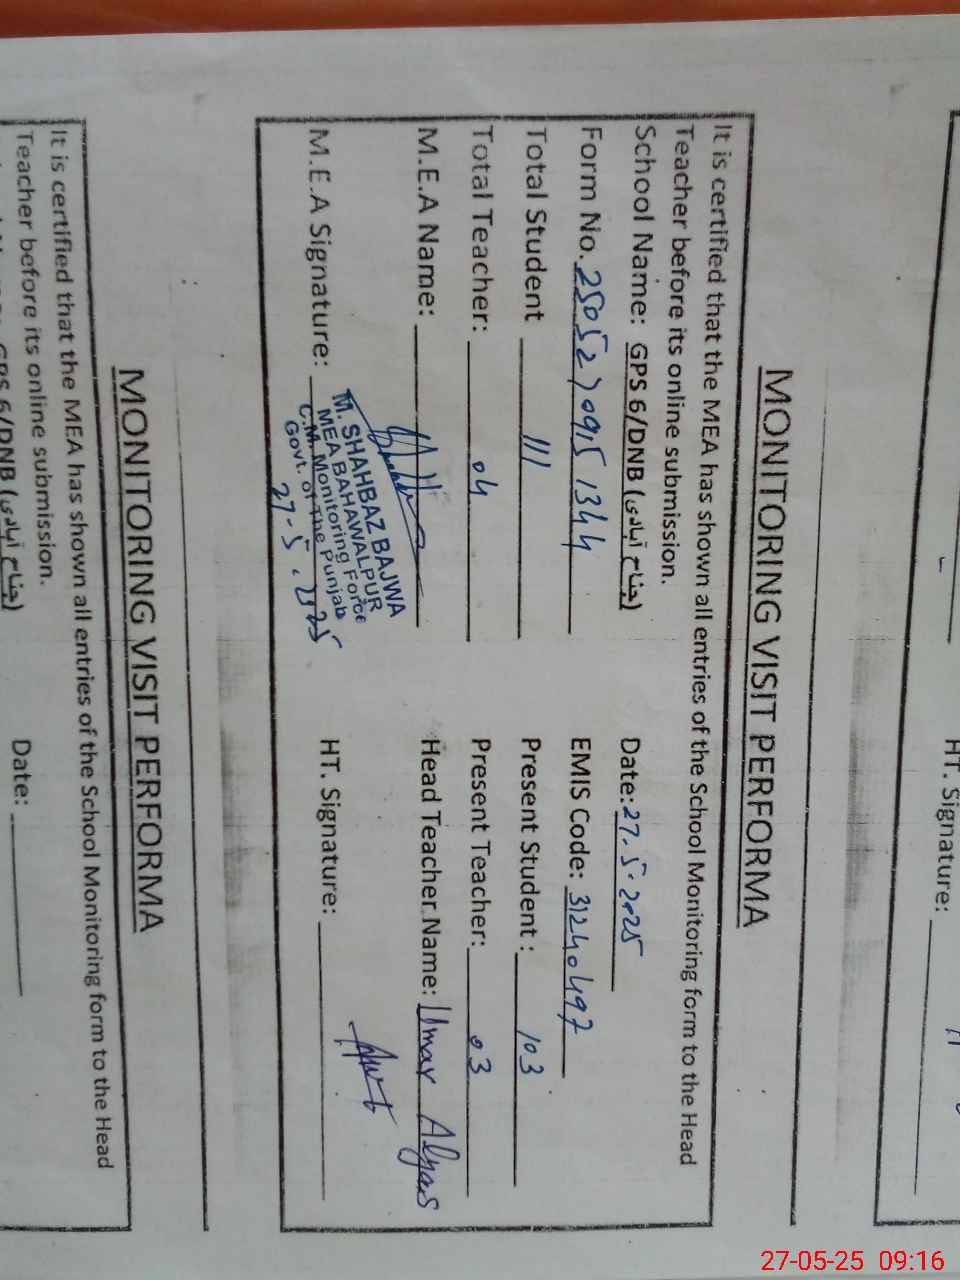 HT. Signature:
MONITORING VISIT PERFORMA
It is certified that the MEA has shown all entries of the School Monitoring form to the Head
Teacher before its online submission.
School Name: GPS 6/DNB (جناح آبادی) Date: 27.5.2025
Form No. 250527 0915 1344 EMIS Code: 31240497
Total Student 111 Present Student : 103
Total Teacher: 04 Present Teacher: 03
M.E.A Name: Head Teacher Name: Umar Alyas
M.E.A Signature: HT. Signature:
M. SHAHBAZ BAJWA
MEA BAHAWALPUR
C.M. Monitoring Force
Govt. of The Punjab
27-5.2025
MONITORING VISIT PERFORMA
It is certified that the MEA has shown all entries of the School Monitoring form to the Head
Teacher before its online submission.
GPS 6/DNB (جناح آبادی) Date:
27-05-25 09:16